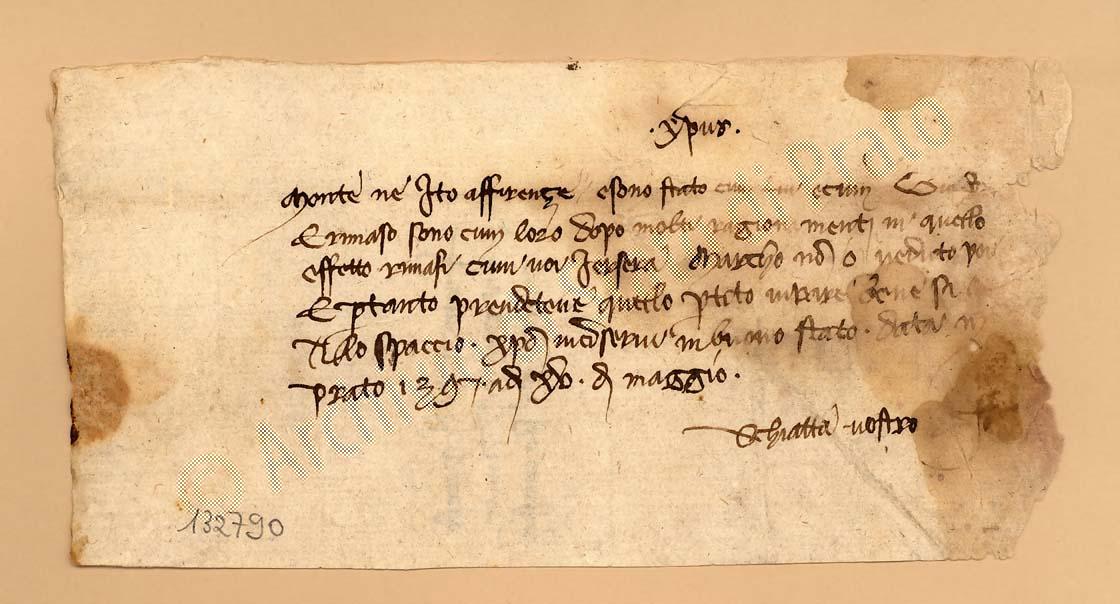 · xpus ·
Monte ne Ito affirenze e sono stato cum
E rimaso sono cum loro dopo molti ragionamenti in quello
effetto rimasi cum voi Iersera Marcho nō ò veduto
E ptanto prendetene quello ptito
spaccio · xpō in buono stato · data
prato 1397 · ad xv · d maggio ·
Schiatta vostro
132790
© Archivio di Stato di Prato